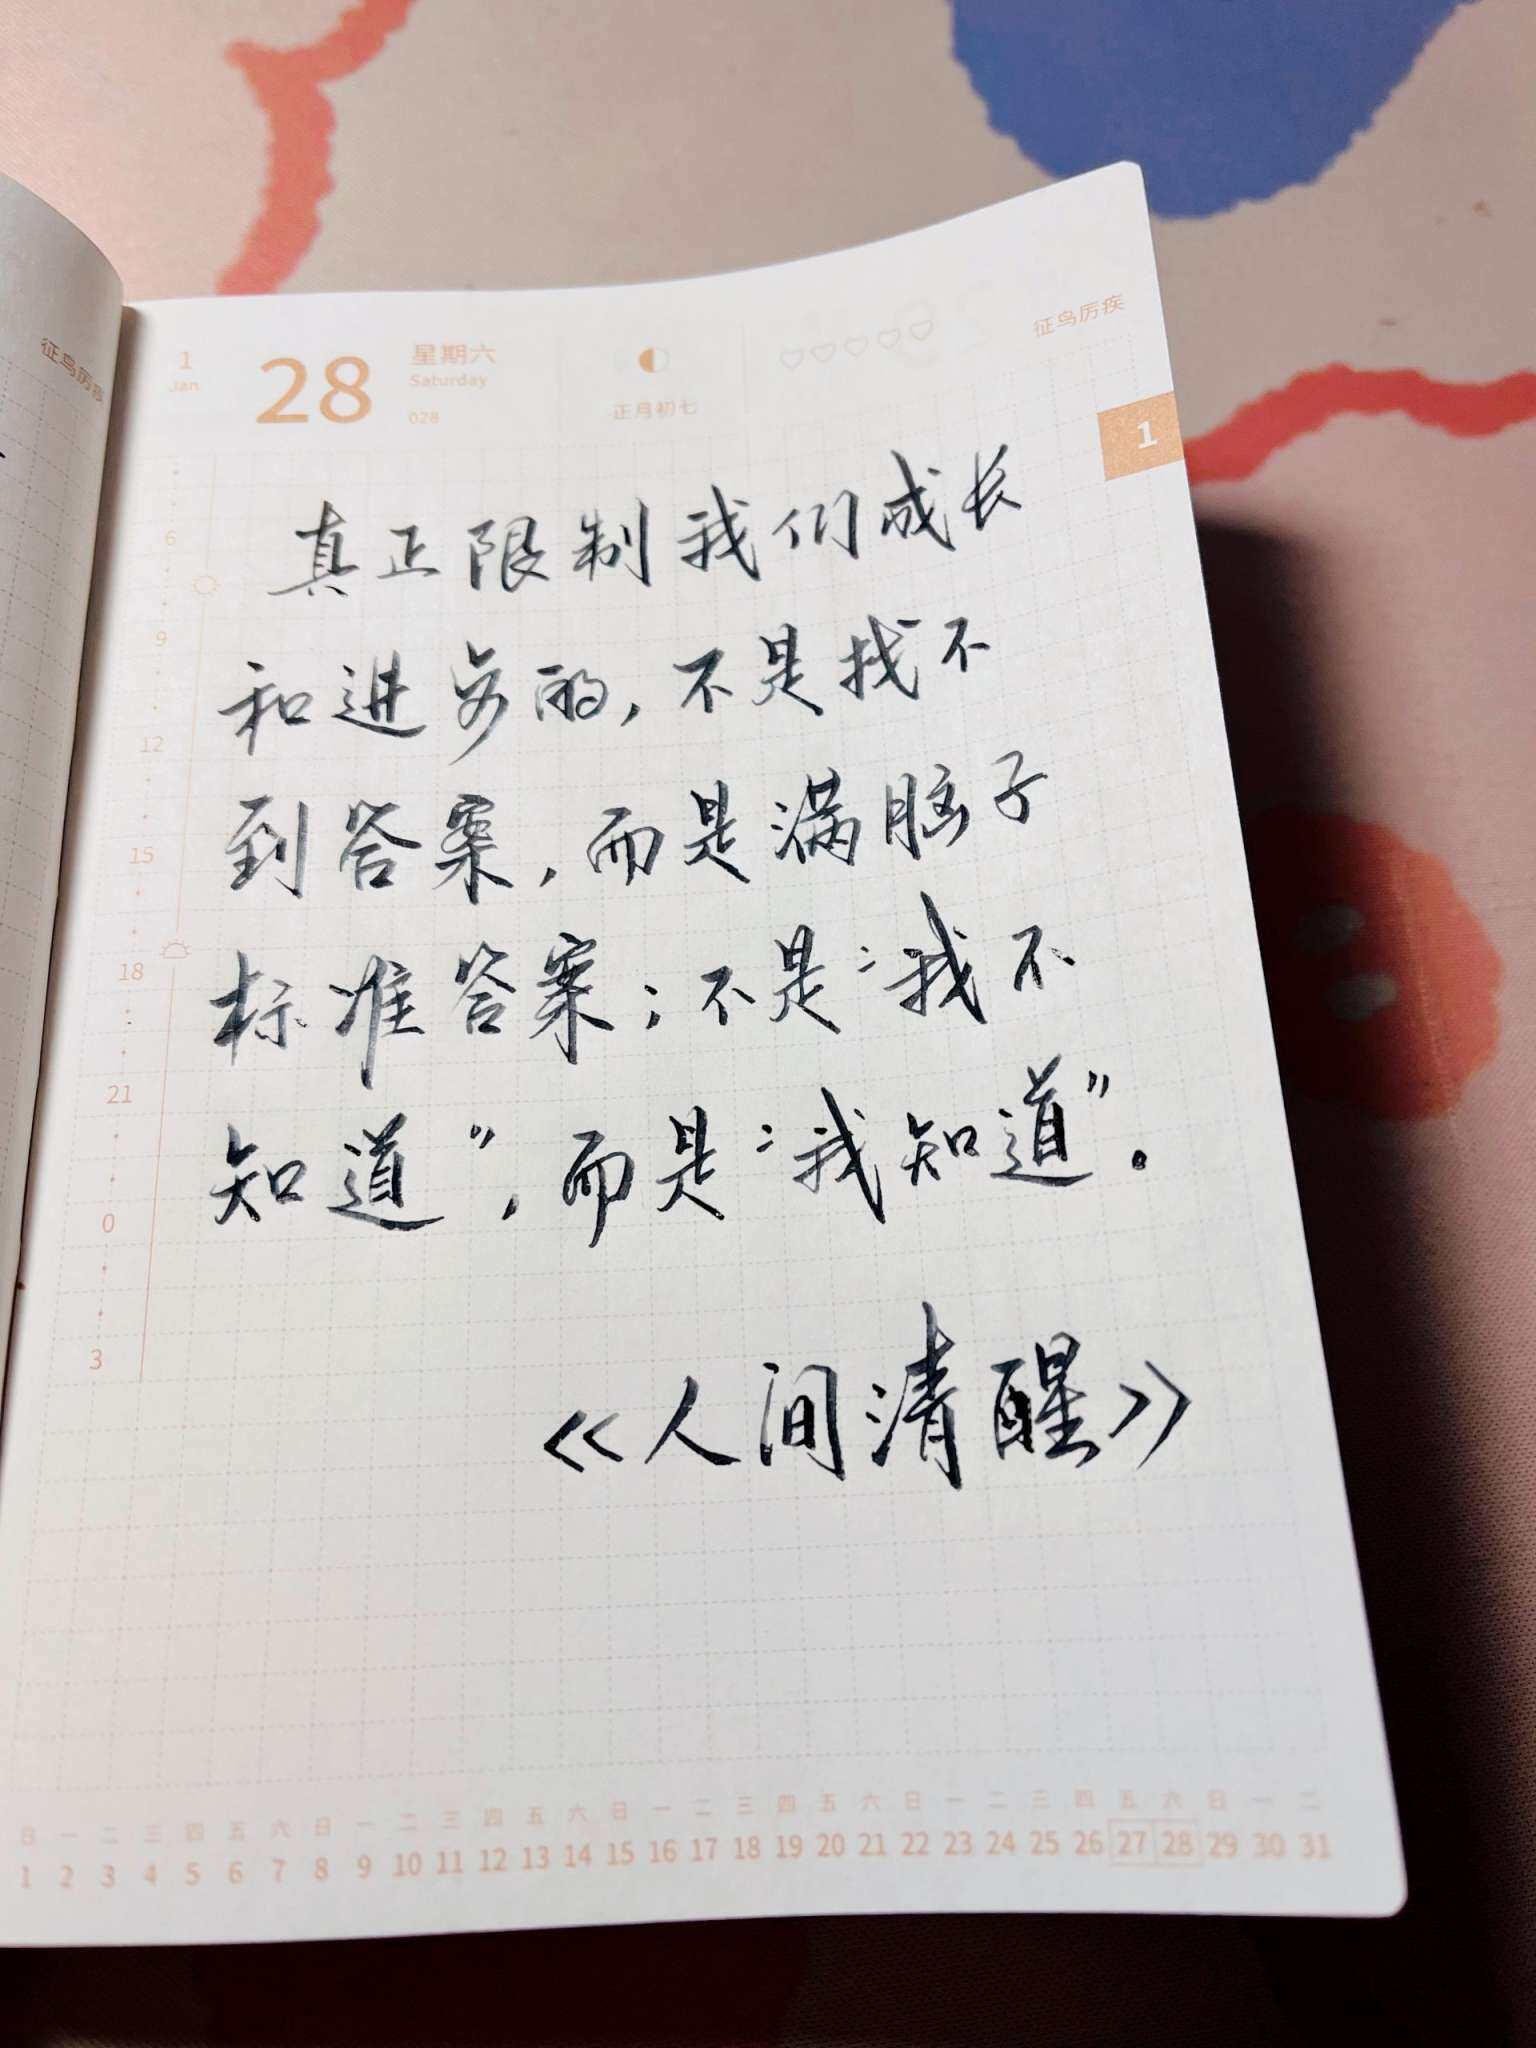 征鸟厉疾
1
Jan
28
星期六
Saturday
028
正月初七
征鸟厉疾
1
真正限制我们成长
和进步的,不是找不
到答案,而是满脑子
标准答案;不是“我不
知道”,而是“我知道”。
《人间清醒》
6
9
12
15
18
21
0
3
日 一 二 三 四 五 六 日 一 二 三 四 五 六 日 一 二 三 四 五 六 日 一 二 三 四 五 六 日 一 二
1 2 3 4 5 6 7 8 9 10 11 12 13 14 15 16 17 18 19 20 21 22 23 24 25 26 27 28 29 30 31